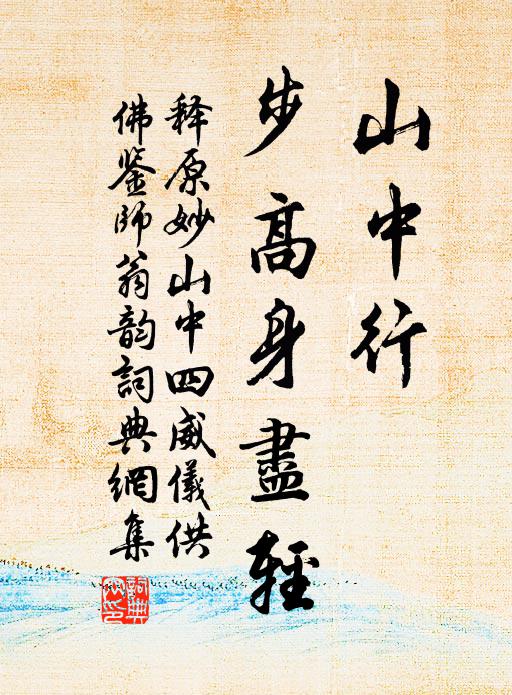 山中行
步高身盡輕
释原妙山中四威儀供
佛鉴師翁韵詞典網集